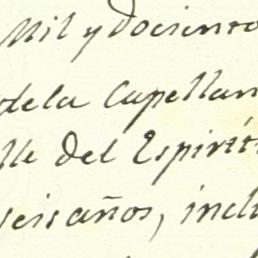 Mil y dociento
dela Capellan
lle del Espirit
seis años, inclu